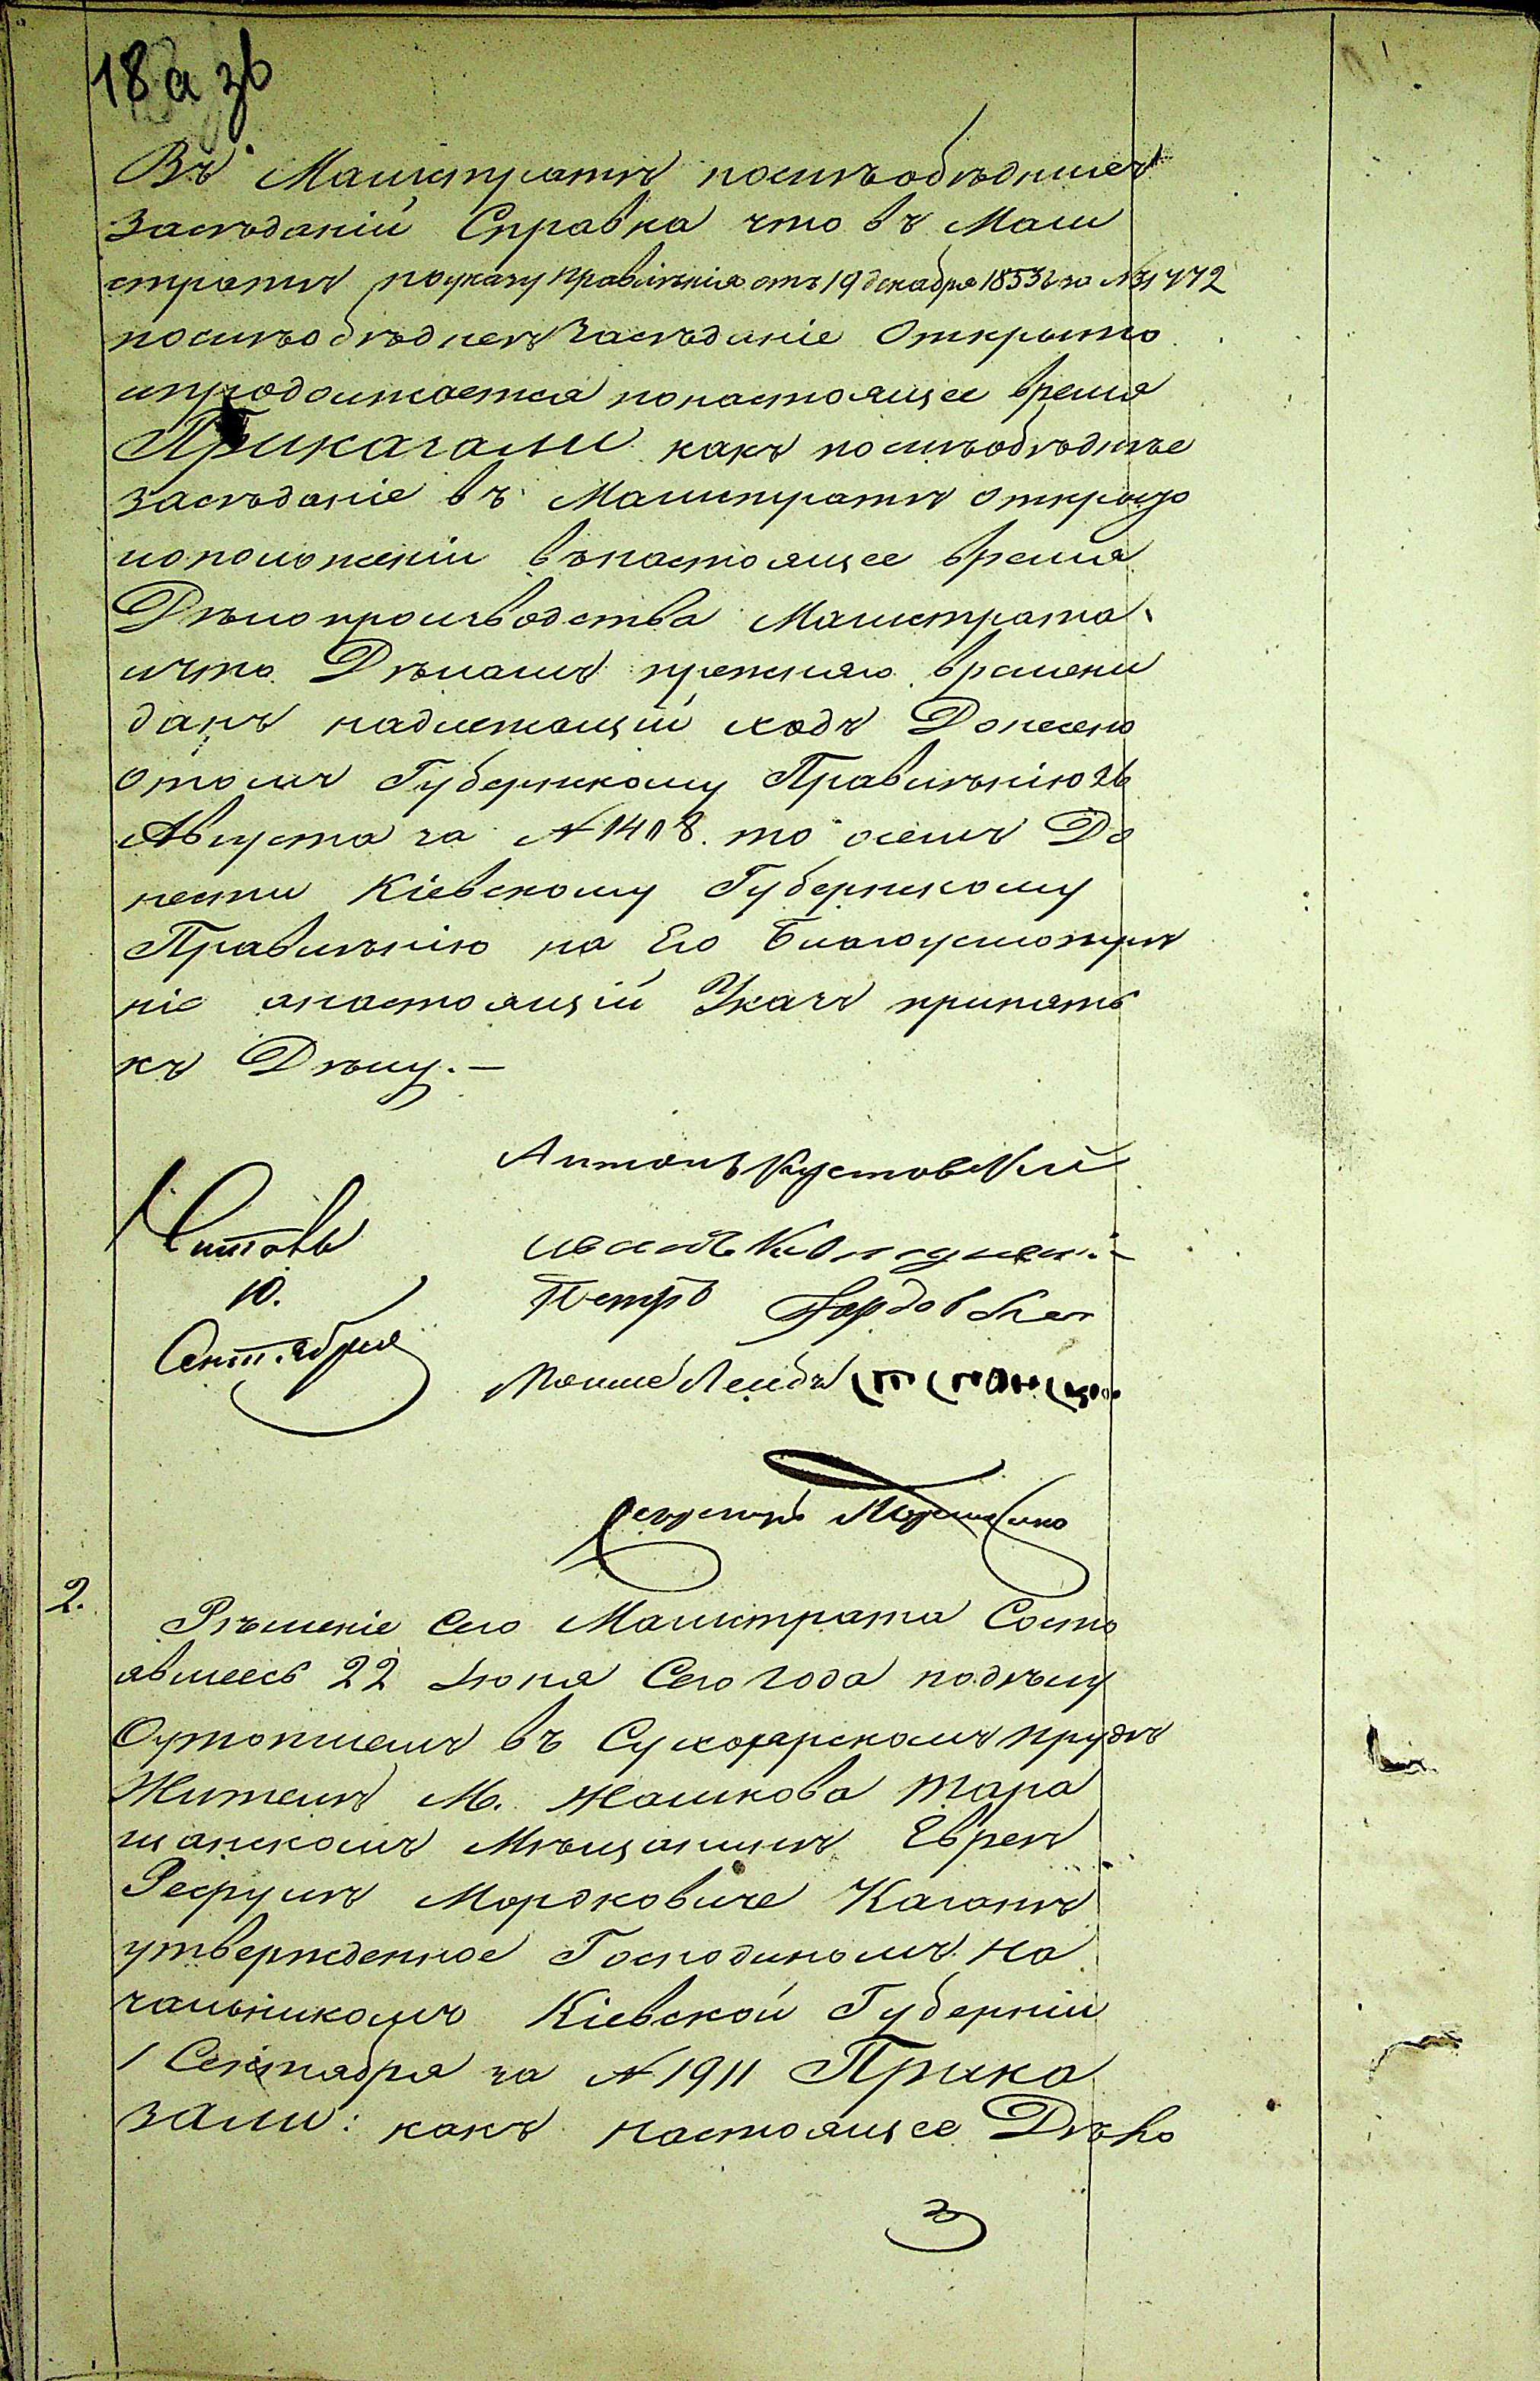 18 а зв
Въ Магистратѣ послѣобѣднихъ
засѣданій Справка что въ Маги
стратѣ по указу Правленія отъ 19 декабря 1853 г за №
послѣобѣднее засѣданіе Открыто
и продолжается по настоящее время
Приказали какъ послѣобѣднѣе
засѣданіе въ Магистратѣ открыто
и о положеніи въ настоящее время
Дѣлопроизводства Магистрата
и что Дѣламъ прежняго времени
данъ надлежащій ходъ Донесено
о томъ Губернскому Правленію 26
Августа за № 1408. то о семъ До
нести Кіевскому Губернскому
Правленію на Его Благоусмотрѣ
ніе а настоящій Указъ принять
къ Дѣлу. —
Антонъ Кустовскій
Читалъ
Иванъ
10.
Петръ
Сентября
Мошко Лейбъ
Секретарь
2.
Рѣшеніе Сего Магистрата Состо
явшееся 22 Іюня Сего года по дѣлу
О утопшемъ въ прудѣ
Жителѣ М. Жашкова Тара
щанскомъ Мѣщанинѣ Евреѣ
Мордковиче Каганѣ
утвержденное Господиномъ На
чальникомъ Кіевской Губерніи
1 Сентября за № 1911 Прика
зали: какъ настоящее Дѣло